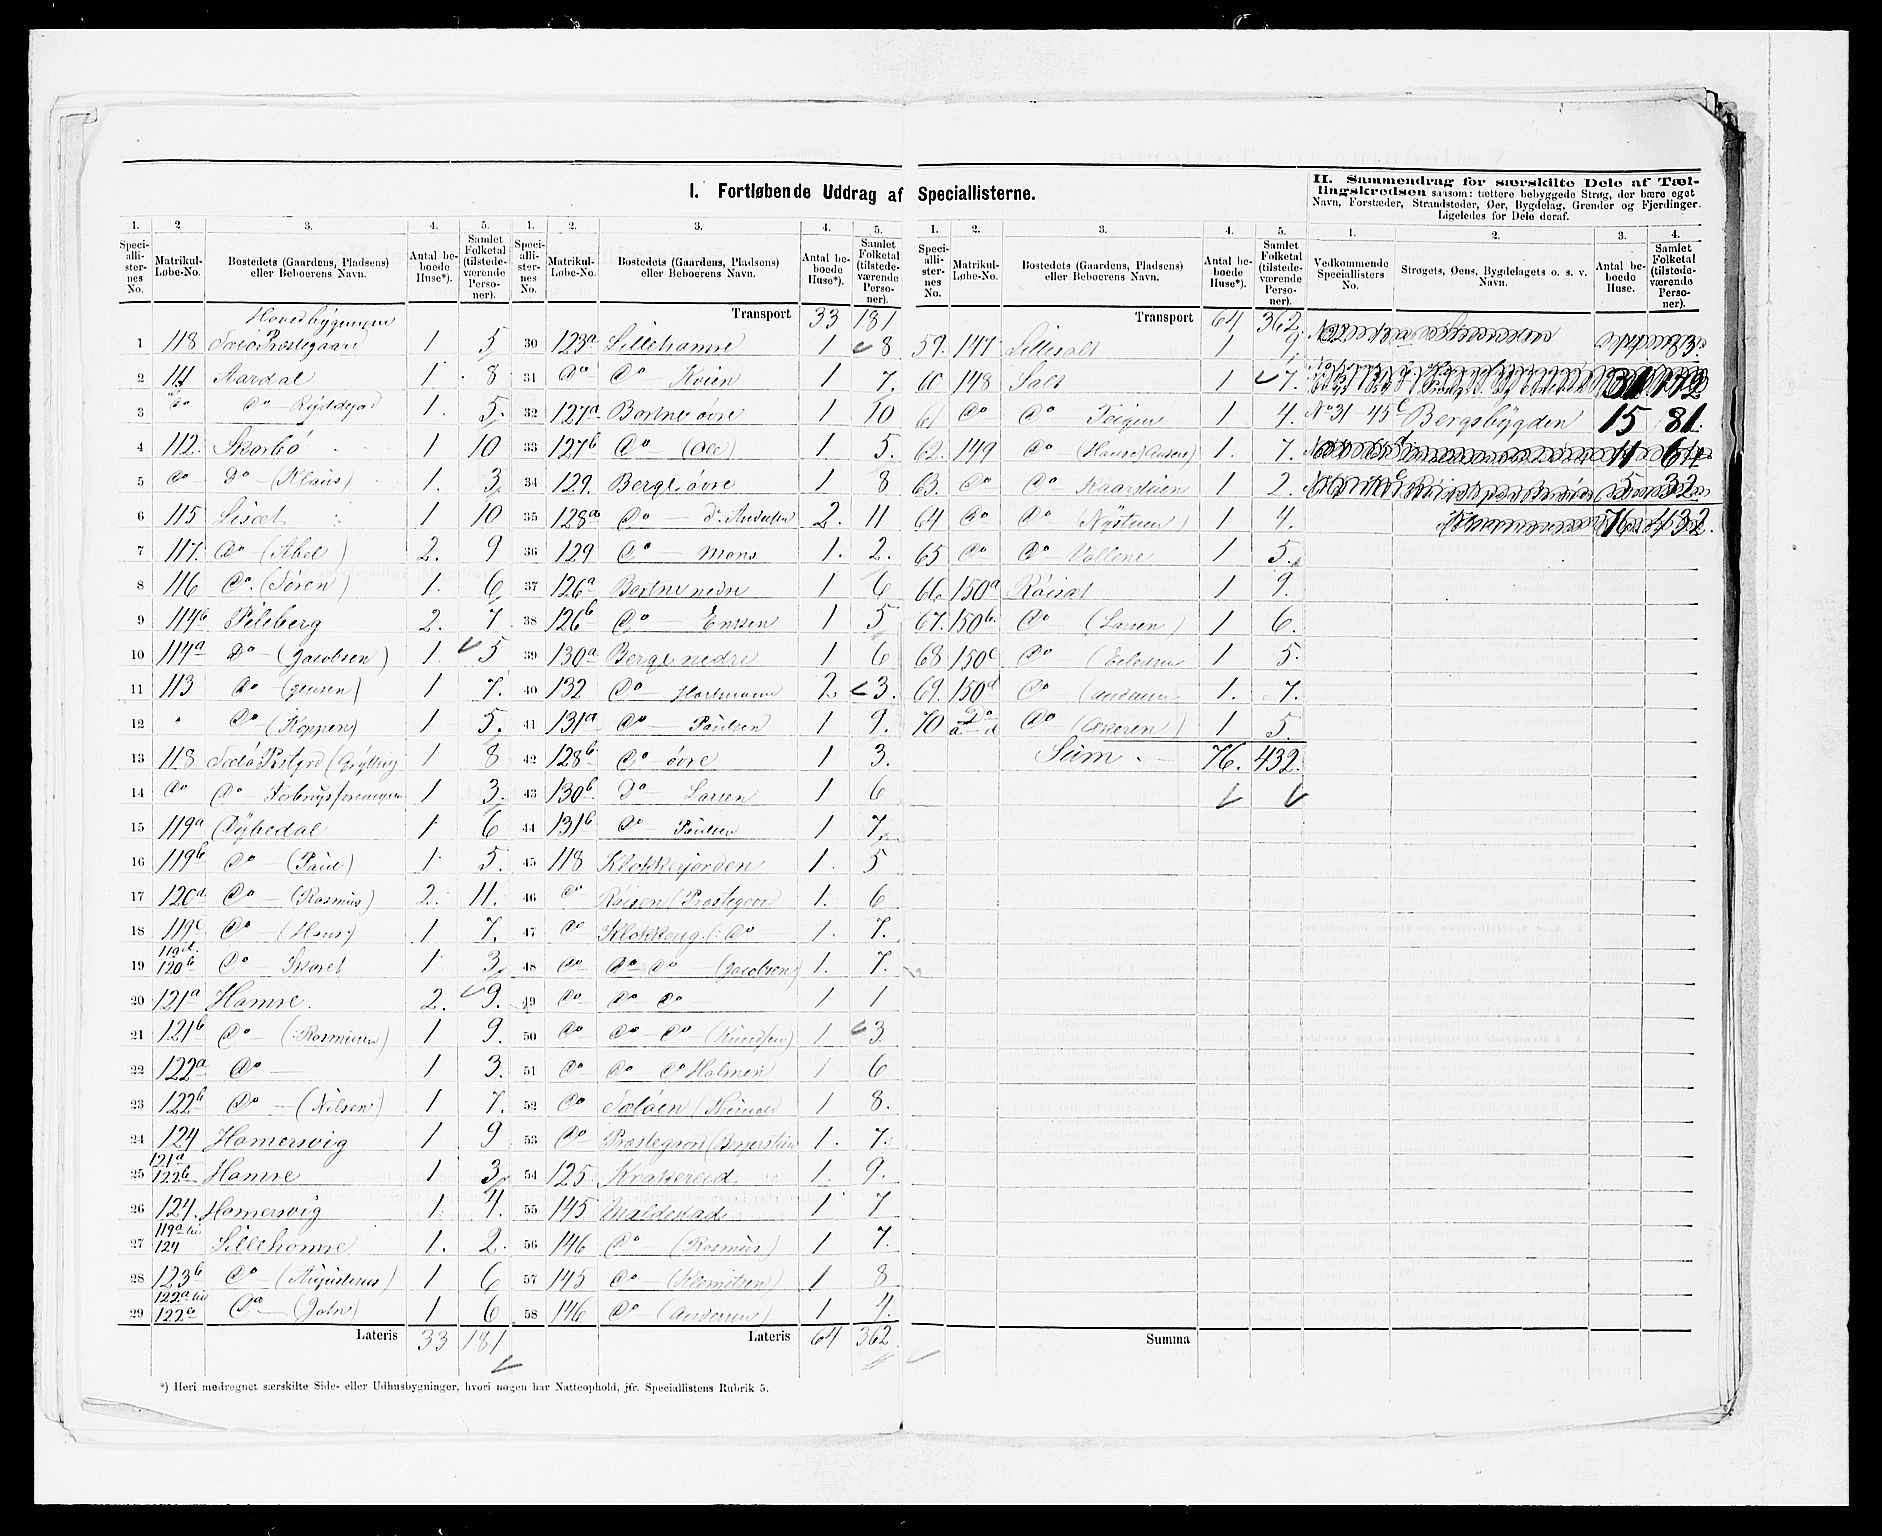 I. Fortløbende Uddrag af Speciallisterne.
1. 2 3. 4. 5.
Speciallisternes No. Matrikul-Løbe-No. Bostedets (Gaardens, Pladsens) eller Beboerens Navn. Antal beboede Huse*). Samlet Folketal (tilstedeværende Personer).
Hovedbygningen
1 118 Præstegaard 1 5
2 111 Aardal 1 8
3 Do Do - 1. 5.
4 112. Skorbö 1 10
5 Do Do - (Klaus) 1. 3
6 115 Liset 1 10
7 117. Do - (Abel) 2. 9
8 116 Do. (Sören) 1. 6
9 114b Pileberg 2. 7
10 114a Do - (Jacobsen) 1. 5
11 113 Do - (Jensen) 1 7.
12 " Do (Koppen) 1 5.
13 118 1 8
14 Do Do Forbrugsforeningen 1 3.
15 119a Dybedal 1 6
16 119b Do - (Paul) 1 5.
17 120a Do - (Rasmus) 2. 11.
18 119c Do - (Hans) 1 7.
19 119d. 120b Do Skaret 1 3
20 121a Hamre. 2. 9.
21 121b Do - (Rasmusen) 1 9.
22 122a Do 1 3.
23 122b Do - (Nilsen) 1 7.
24 124 Hamersvig 1 9
25 121a 122b Hamre 1 3
26 124. Hamersvig 1 4.
27 119a til 124 Lillehamre 1. 2.
28 123b Do - (Augustinus) 1 6
29 122a til 122c Do - (John) 1 6
Lateris 33 181
1. 2. 3. 4. 5.
Speciallisternes No. Matrikul-Løbe-No. Bostedets (Gaardens, Pladsens) eller Beboerens Navn. Antal beboede Huse*). Samlet Folketal (tilstedeværende Personer).
Transport 33 181
30 123a Lillehamre 1 8
31 Do Do - Kvien 1 7.
32 127a Bortne övre 1 10
33 127b Do - (Ole) 1. 5.
34 129. Berge övre 1 8
35 128a Do - do Andersen 2. 11
36 129 Do - Mons 1. 2.
37 126a Bortne nedre 1 6
38 126b Do - Ensen 1 5
39 130a Berge nedre 1 6
40 132 Do - Hartmann 2 3.
41 131a Do - Paulsen 1 9.
42 128b Do övre 1 3.
43 130b Do - Larsen 1 6
44 131b Do - Paulsen 1 7
45 118 Klokkerjorden 1. 5
46 Do (Præstegaard 1. 6
47 Do Do 1. 7.
48 Do Do Do - (Jacobsen) 1. 7.
49 Do Do Do 1 1
50 Do Do - Do (Knudsen) 1 3
51 Do Do - Do Holmen 1 6
52 Do 1 8.
53 Do Præstegaard 1. 7.
54 125 Krakereid 1. 9.
55 145 Maldestad 1 7
56 146 Do - (Rasmus) 1 7.
57 145 Do - (Klemitsen) 1 8
58 146 Do - (Andersen) 1 4.
Lateris 64 362
1. 2. 3. 4. 5.
Speciallisternes No. Matrikul-Løbe-No. Bostedets (Gaardens, Pladsens) eller Beboerens Navn. Antal beboede Huse*). Samlet Folketal (tilstedeværende Personer).
Transport 64 362
59. 147 Lillesalt 1 9
60 148 Salt 1 7.
61 Do Do Teigen 1 4.
62. 149 Do 1. 7.
63. Do Do Kaarstuen 1 2.
64 Do Do 1 4.
65 Do Do - Vallene 1 5.
66 150a Röiset 1 9.
67. 150b. Do - (Larsen) 1 6.
68 150c Do 1 5.
69. 150d Do 1. 7.
70 Do a - d Do (Akeren) 1 5.
Sum. 76. 432.
Summa
II. Sammendrag for særskilte Dele af Tællingskredsen saasom: tættere bebyggede Strøg, der bære eget Navn, Forstæder, Strandsteder, Øer, Bygdelag, Grender og Fjerdinger. Ligeledes for Dele deraf.
1. 2. 3. 4.
Vedkommende Speciallisters No. Strøgets, Øens, Bygdelagets o. s. v. Navn. Antal beboede Huse. Samlet Folketal (tilstedeværende Personer).
No 31 45 Bergsbygden 15 81.
11 64
5 32
76 432.
*) Heri medregnet særskilte Side- eller Udhusbygninger, hvori nogen har Natteophold, jfr. Speciallistens Rubrik 5.